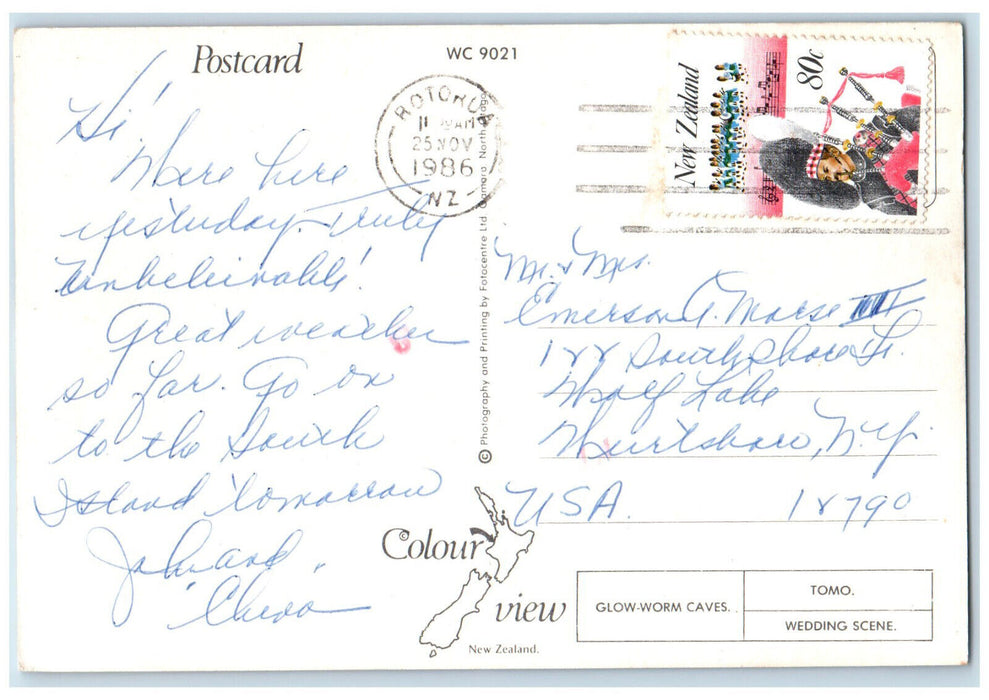 Postcard
WC 9021
ROTORUA
11 AM
25 NOV
1986
NZ
New Zealand
80c
Hi!
Were here
yesterday. Truly
Unbeleivable!
Great weather
so far. Go on
to the South
Island tomorrow
John and
"Chica"
© Photography and Printing by Fotocentre Ltd. Oamaru North Otago
Mr. & Mrs.
Emerson A. Morse III
122 South Shore
Wolf Lake
Wurtsboro, N.Y.
USA. 12790
©Colour
view
New Zealand.
GLOW-WORM CAVES.
TOMO.
WEDDING SCENE.